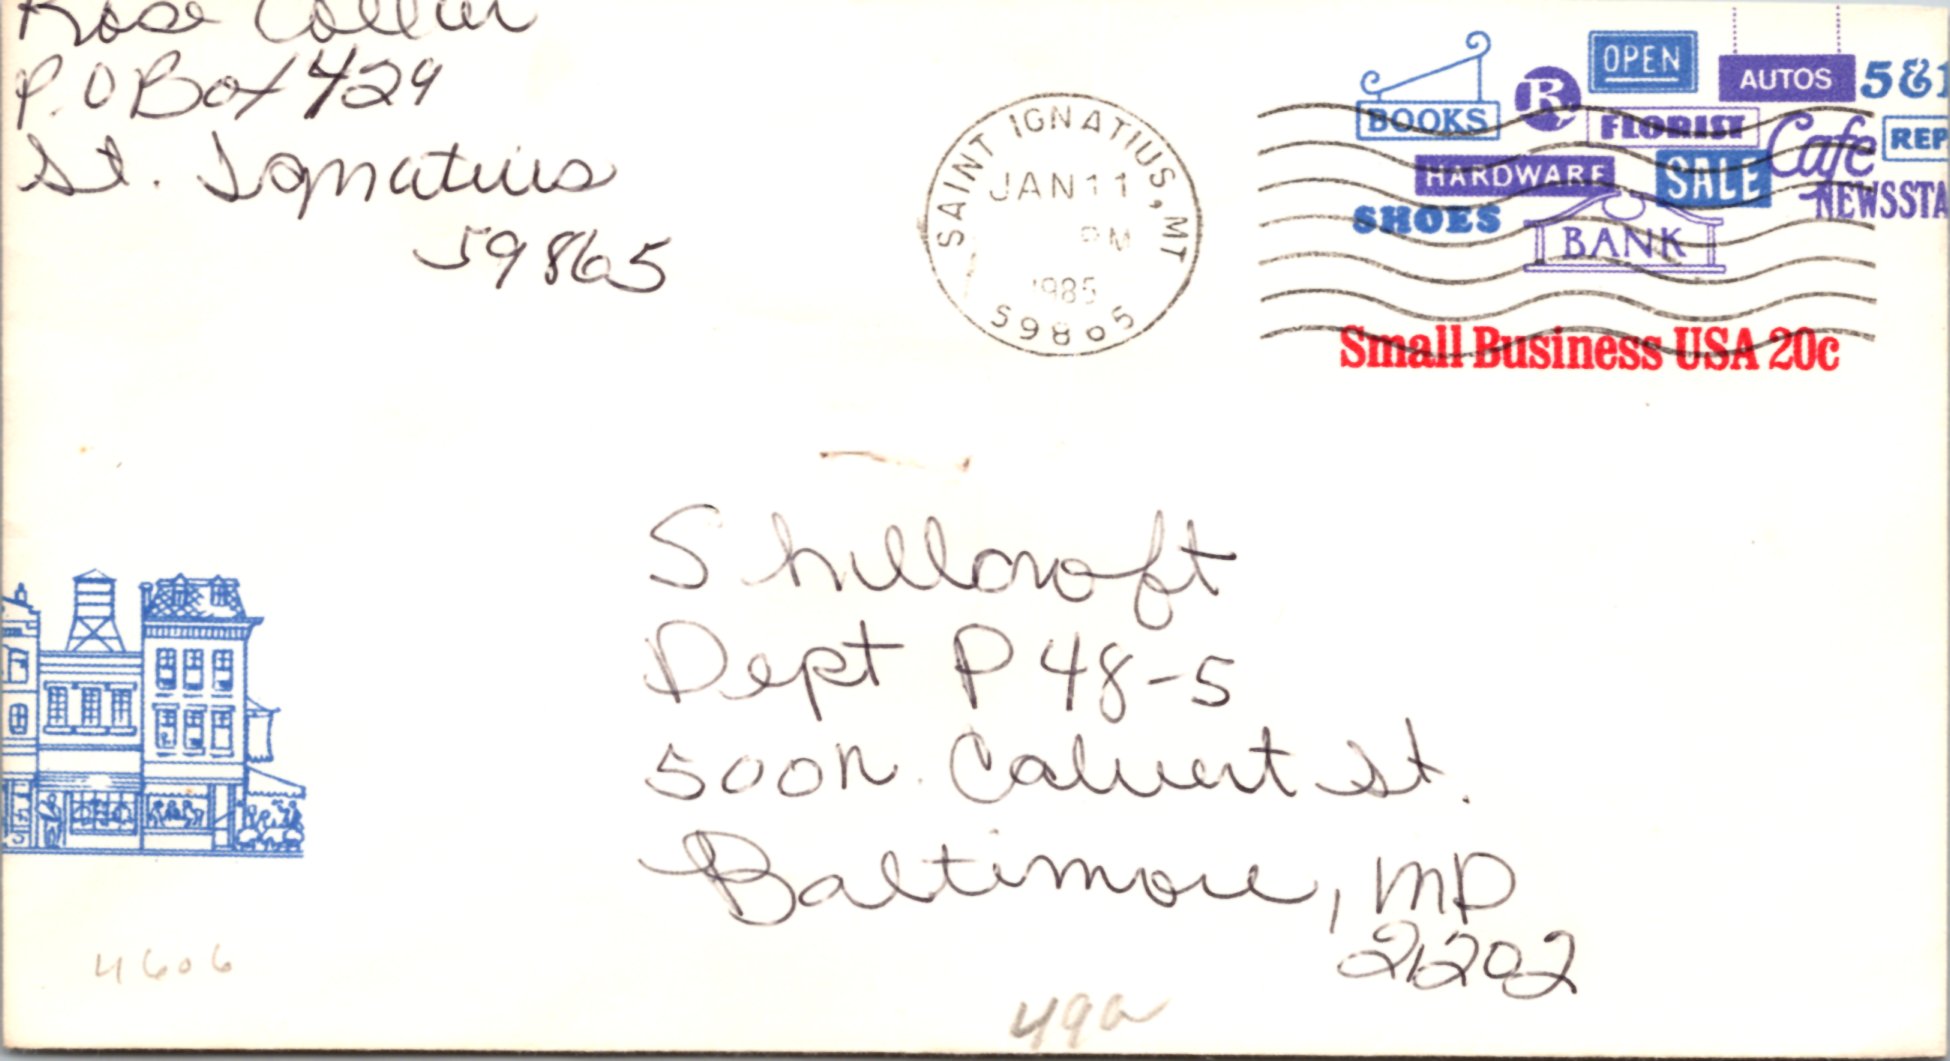 Rose Collier
P.O Box 429
St. Ignatius
59865
SAINT IGNATIUS, MT
JAN 11
PM
1985
59865
BOOKS
R
OPEN
AUTOS
5&1
FLORIST
Cafe
REP
HARDWARE
SALE
NEWSSTA
SHOES
BANK
Small Business USA 20c
Shillcroft
Dept P 48-5
500 N. Calvert St.
Baltimore, MD
21202
4606
49a